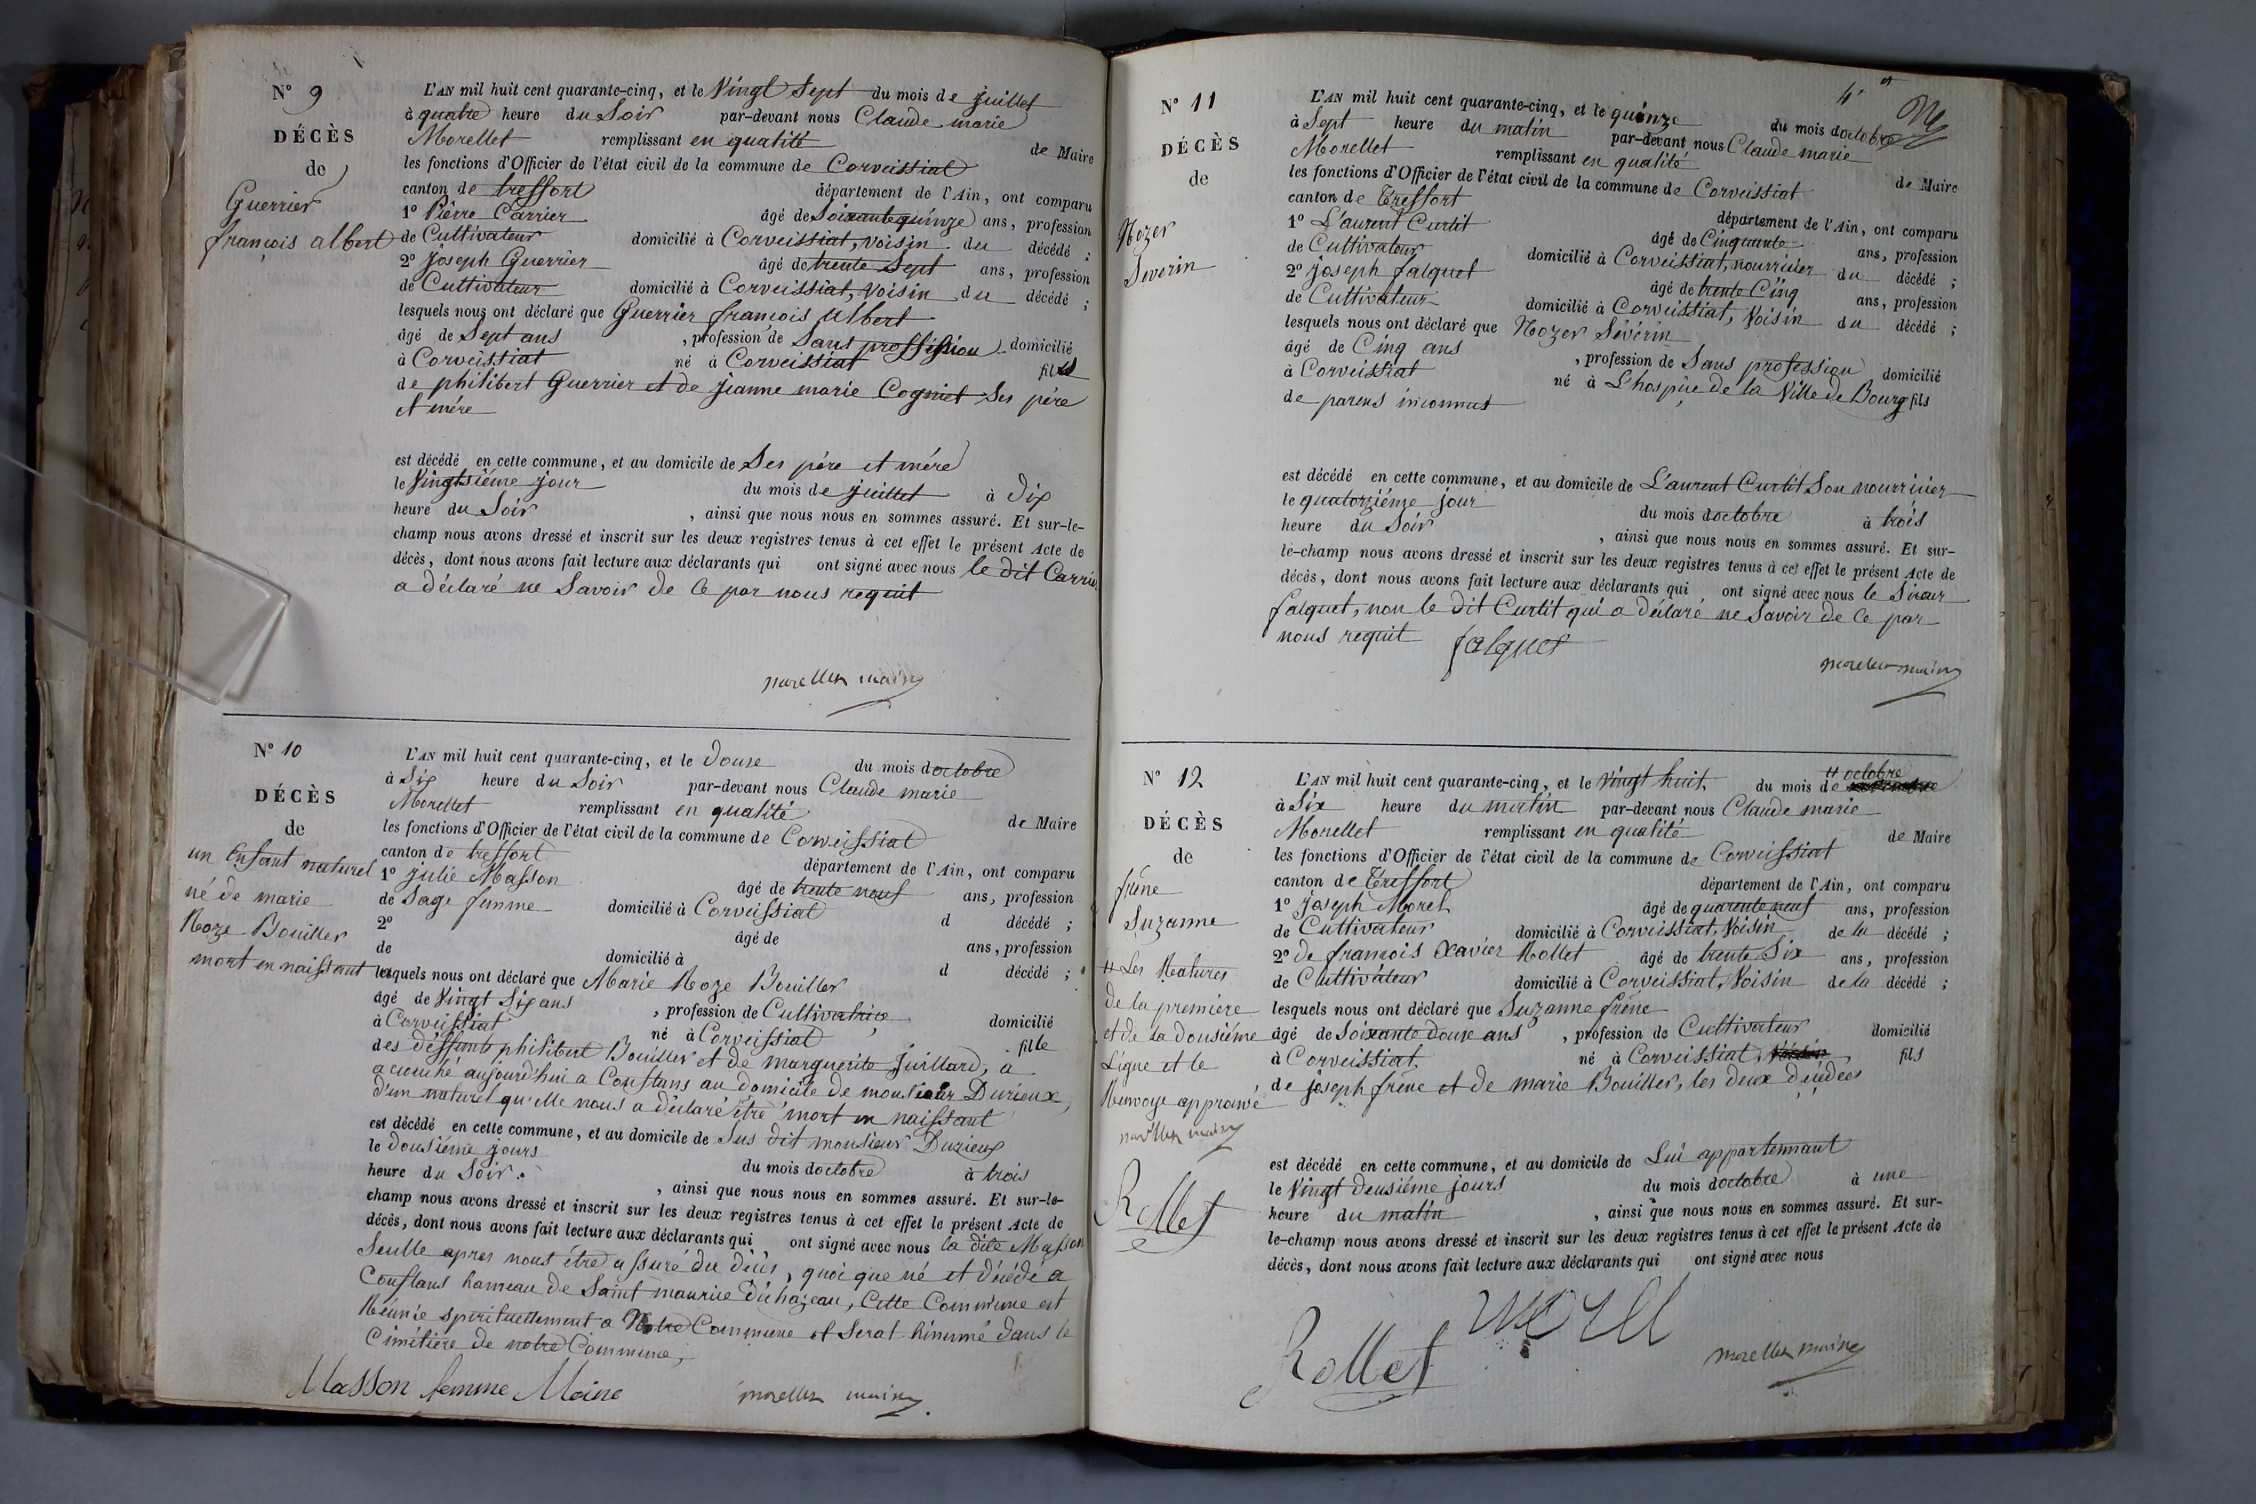 N° 9
DÉCÈS
de
Guerrier
françois albert
L'AN mil huit cent quarante-cinq, et le Vingt Sept du mois de juillet
à quatre heure du Soir par-devant nous Claude marie
Morellet remplissant en qualité de Maire
les fonctions d'Officier de l'état civil de la commune de Corveissiat
canton de treffort département de l'Ain, ont comparu
1° Pierre Carrier âgé de Soixante quinze ans, profession
de Cultivateur domicilié à Corveissiat, voisin du décédé ;
2° Joseph Guerrier âgé de trente Sept ans, profession
de Cultivateur domicilié à Corveissiat, Voisin du décédé ;
lesquels nous ont déclaré que Guerrier françois Albert
âgé de Sept ans , profession de Sans proffession domicilié
à Corveissiat né à Corveissiat fils
de philibert Guerrier et de jeanne marie Cogniet Ses père
et mére
est décédé en cette commune, et au domicile de Ses pére et mére
le Vingtsiéme jour du mois de juillet à dix
heure du Soir , ainsi que nous nous en sommes assuré. Et sur-le-
champ nous avons dressé et inscrit sur les deux registres tenus à cet effet le présent Acte de
décès, dont nous avons fait lecture aux déclarants qui ont signé avec nous le dit Carrier
a déclaré ne Savoir de Ce par nous requit
morellet maire
N° 10
DÉCÈS
de
un Enfant naturel
né de marie
Roze Bouiller
mort en naissant
L'AN mil huit cent quarante-cinq, et le Douse du mois doctobre
à Six heure du Soir par-devant nous Claude marie
Morellet remplissant en qualité de Maire
les fonctions d'Officier de l'état civil de la commune de Corveissiat
canton de treffort département de l'Ain, ont comparu
1° julie Masson âgé de trente neuf ans, profession
de Sage femme domicilié à Corveissiat d décédé ;
2° âgé de ans, profession
de domicilié à d décédé ;
lesquels nous ont déclaré que Marie Roze Bouiller
âgé de Vingt Six ans , profession de Cultivatrice domicilié
à Corveissiat né à Corveissiat fille
des déffunts philibert Bouiller et de marguerite Juillard, a
acuché aujourd'hui a Conflans au domicile de monsieur Durieux,
d'un naturel qu'elle nous a déclaré être mort en naissant
est décédé en cette commune, et au domicile de Sus dit monsieur Durieux
le dousiéme jours du mois doctobre à trois
heure du Soir. , ainsi que nous nous en sommes assuré. Et sur-le-
champ nous avons dressé et inscrit sur les deux registres tenus à cet effet le présent Acte de
décès, dont nous avons fait lecture aux déclarants qui ont signé avec nous la dite Masson
Seulle apres nous être assuré du décès, quoi que né et décédé a
Conflans hameau de Saint maurice d'échazeau, Cette Commune est
Réunie spirituellement a Notre Commune et Serat hinumé dans le
Cimitiére de notre Commune,
Masson femme Moine
morellet maire
4
N° 11
DÉCÈS
de
Rozer
Severin
L'AN mil huit cent quarante-cinq, et le quinze du mois doctobre
à Sept heure du matin par-devant nous Claude marie
Morellet remplissant en qualité de Maire
les fonctions d'Officier de l'état civil de la commune de Corveissiat
canton de Treffort département de l'Ain, ont comparu
1° Laurent Curtit âgé de Cinquante ans, profession
de Cultivateur domicilié à Corveissiat, nourricier du décédé ;
2° joseph falquet âgé de trente Cinq ans, profession
de Cultivateur domicilié à Corveissiat, Voisin du décédé ;
lesquels nous ont déclaré que Rozer Sévérin
âgé de Cinq ans , profession de Sans profession domicilié
à Corveissiat né à L'hospice de la Ville de Bourg fils
de parens inconnus
est décédé en cette commune, et au domicile de Laurent Curtit Son nourricier
le quatorziéme jour du mois doctobre à trois
heure du Soir , ainsi que nous nous en sommes assuré. Et sur-
le-champ nous avons dressé et inscrit sur les deux registres tenus à cet effet le présent Acte de
décès, dont nous avons fait lecture aux déclarants qui ont signé avec nous le Sieur
falquet, non le dit Curtit qui a déclaré ne Savoir de Ce par
nous requit falquet
morellet maire
N° 12
DÉCÈS
de
frêne
Suzanne
Les Ratures
de la premiere
et de la dousiéme
Ligne et le
Renvoye approuvé
morellet maire
Rollet
L'AN mil huit cent quarante-cinq, et le Vingt huit du mois de octobre
à Six heure du matin par-devant nous Claude marie
Morellet remplissant en qualité de Maire
les fonctions d'Officier de l'état civil de la commune de Corveissiat
canton de Treffort département de l'Ain, ont comparu
1° joseph Morel âgé de quarente neuf ans, profession
de Cultivateur domicilié à Corveissiat, Voisin de la décédé ;
2° de françois Xavier Rollet âgé de trente Six ans, profession
de Cultivateur domicilié à Corveissiat, Voisin de la décédé ;
lesquels nous ont déclaré que Suzanne frêne
âgé de Soixante douse ans , profession de Cultivateur domicilié
à Corveissiat né à Corveissiat, Voisin fils
de joseph frêne et de marie Bouiller, les deux décédés
est décédé en cette commune, et au domicile de Lui appartennant
le Vingt deusiéme jours du mois doctobre à une
heure du matin , ainsi que nous nous en sommes assuré. Et sur-
le-champ nous avons dressé et inscrit sur les deux registres tenus à cet effet le présent Acte de
décès, dont nous avons fait lecture aux déclarants qui ont signé avec nous
morel
Rollet
morellet maire